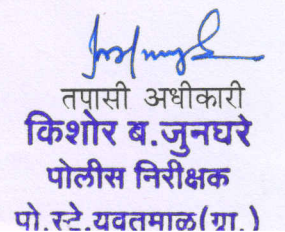 तपासी अधीकारी
किशोर ब.जुनघरे
पोलीस निरीक्षक
पो.स्टे.यवतमाळ(ग्रा.)